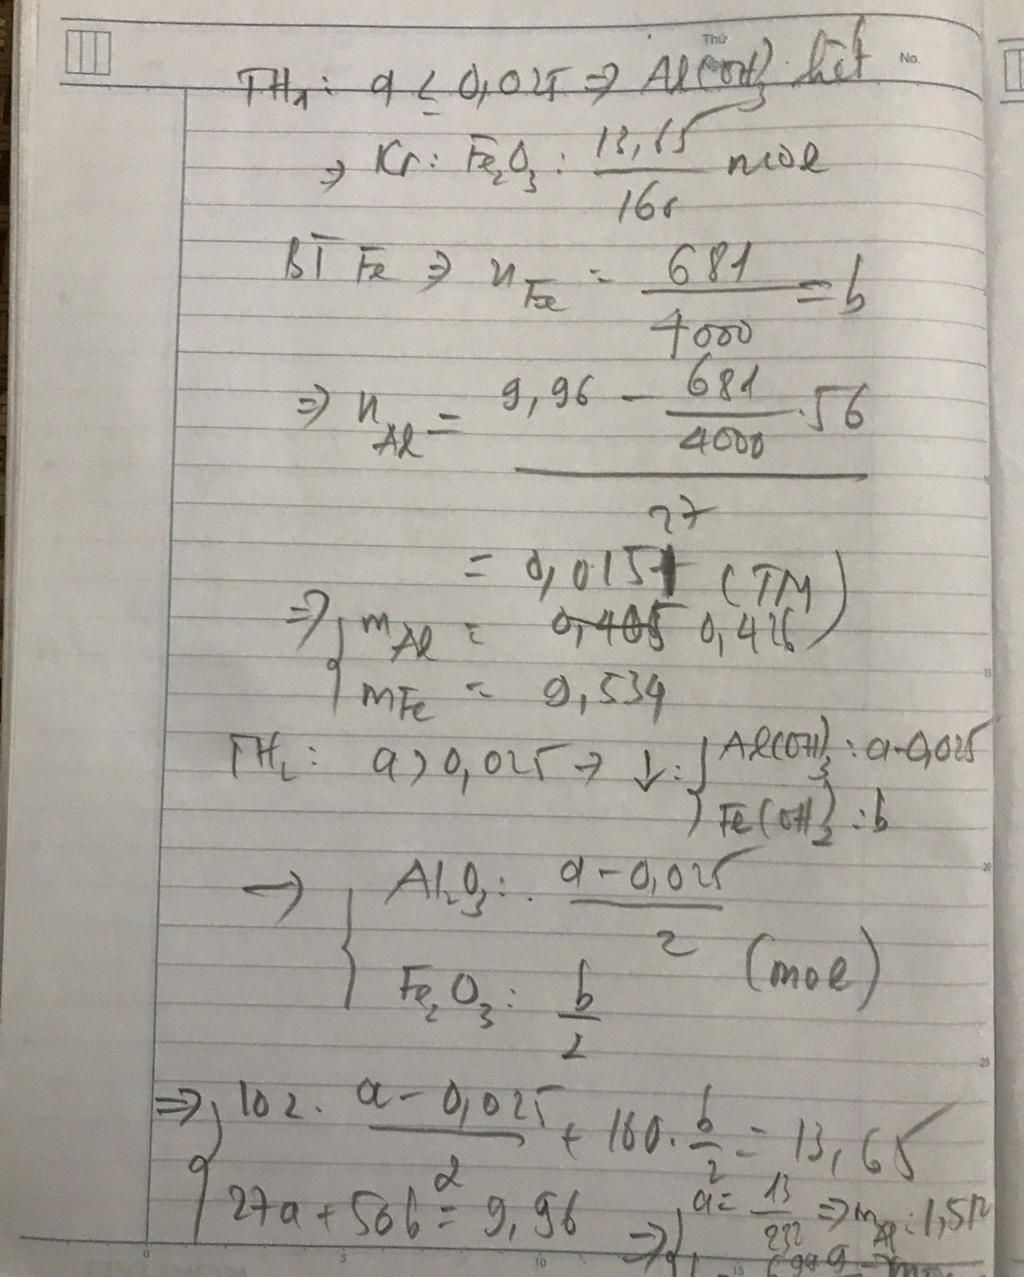 Thứ
No.
TH₁: a ≤ 0,025 ⇒ Al(OH)₃ hết
⇒ Kr: Fe₂O₃: 13,65/160 mol
BT Fe ⇒ n_Fe = 681/4000 = b
⇒ n_Al = (9,96 - 681/4000 . 56)/27
= 0,0157 (TM)
⇒ { m_Al = 0,426
m_Fe = 9,534
TH₂: a > 0,025 → ↓: { Al(OH)₃: a-0,025
Fe(OH)₂: b
→ { Al₂O₃: (a - 0,025)/2
Fe₂O₃: b/2 (mol)
⇒ { 102. (a - 0,025)/2 + 160. b/2 = 13,65
27a + 56b = 9,96
⇒ { a = 13/232 ⇒ m_Al: 1,512